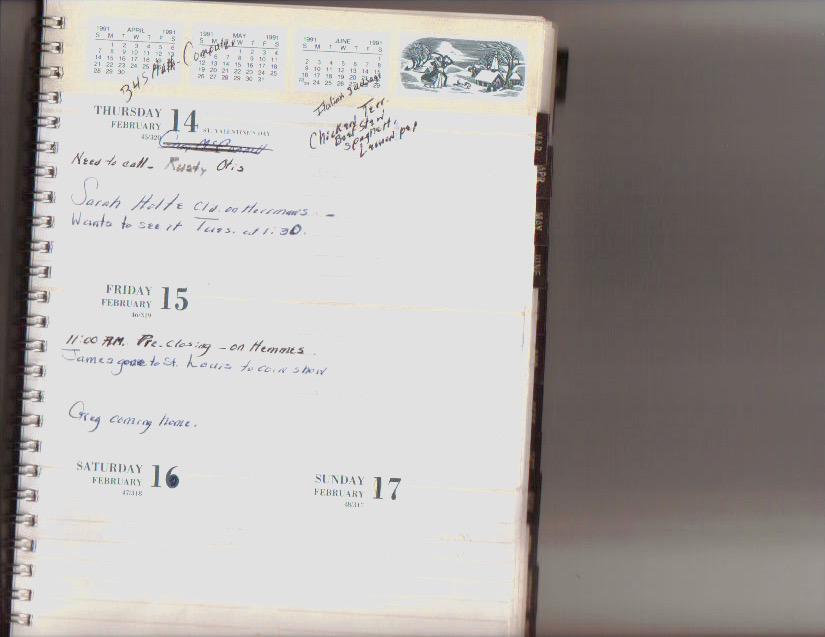 1991 APRIL 1991
S M T W T F S
1 2 3 4 5 6
7 8 9 10 11 12 13
14 15 16 17 18 19 20
21 22 23 24 25 26 27
28 29 30
1991 MAY 1991
S M T W T F S
1 2 3 4
5 6 7 8 9 10 11
12 13 14 15 16 17 18
19 20 21 22 23 24 25
26 27 28 29 30 31
1991 JUNE 1991
S M T W T F S
1
2 3 4 5 6 7 8
9 10 11 12 13 14 15
16 17 18 19 20 21 22
23/30 24 25 26 27 28 29
345 Math - Computer
Italian Sausage
Chicken Terr.
Beef Stew
Spaghetti
Lemon pep
THURSDAY
FEBRUARY 14
45/320 ST. VALENTINE'S DAY
Need to call - Rusty Otis
Sarah Holte Cld. on Herrmans -
Wants to see it Tues. at 1:30.
FRIDAY
FEBRUARY 15
46/319
11:00 A.M. Pre-Closing - on Hemmes.
James gone to St. Louis to coin show
Greg coming home.
SATURDAY
FEBRUARY 16
47/318
SUNDAY
FEBRUARY 17
48/317
MAR
APR
MAY
JUNE